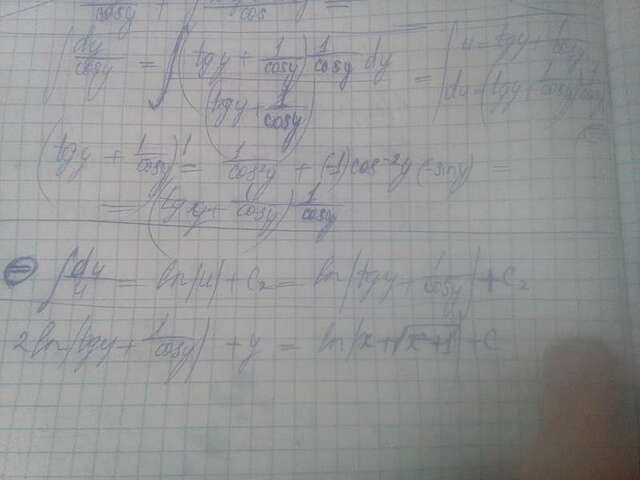 ∫ dy/cosy = ∫ (tgy + 1/cosy) 1/cosy dy / (tgy + 1/cosy) = | u = tgy + 1/cosy
du = (tgy + 1/cosy) 1/cosy
(tgy + 1/cosy)' = 1/cos²y + (-1) cos⁻²y (-siny) =
= (tgy + 1/cosy) 1/cosy
⊜ ∫ du/u = ln|u| + C₂ = ln|tgy + 1/cosy| + C₂
2ln|tgy + 1/cosy| + y = ln|x + √x²+1| + C